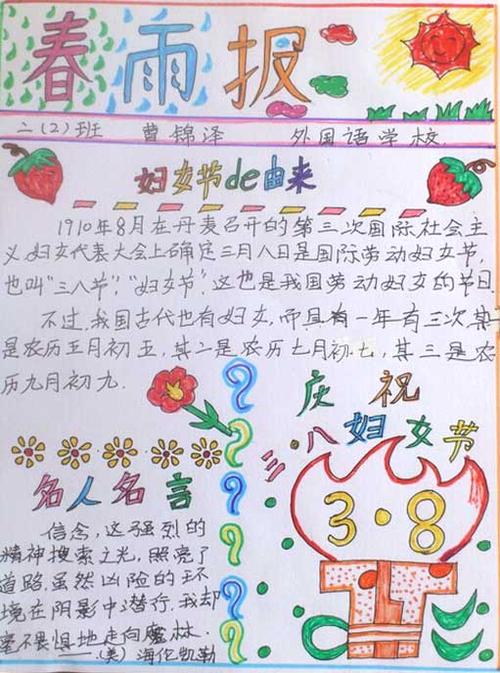 春雨报
二(2)班 曹锦泽 外国语学校
妇女节de由来
1910年8月在丹麦召开的第三次国际社会主
义妇女代表大会上确定三月八日是国际劳动妇女节,
也叫“三八节”,“妇女节”.这也是我国劳动妇女的节日.
不过,我国古代也有妇女,而且有一年有三次.其一
是农历五月初五,其二是农历七月初七,其三是农
历九月初九.
庆祝
三·八妇女节
3·8
名人名言
信念,这强烈的
精神搜索之光,照亮了
道路,虽然凶险的环
境在阴影中潜行,我却
毫不畏惧地走向魔林.
——(美)海伦凯勒